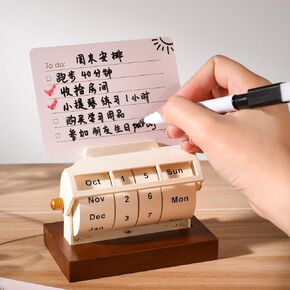 周末安排
To do:
跑步40分钟
收拾房间
小提琴练习1小时
购买学习用品
参加朋友生日party
Oct 1 5 Sun
Nov 2 6 Mon
Dec 3 7